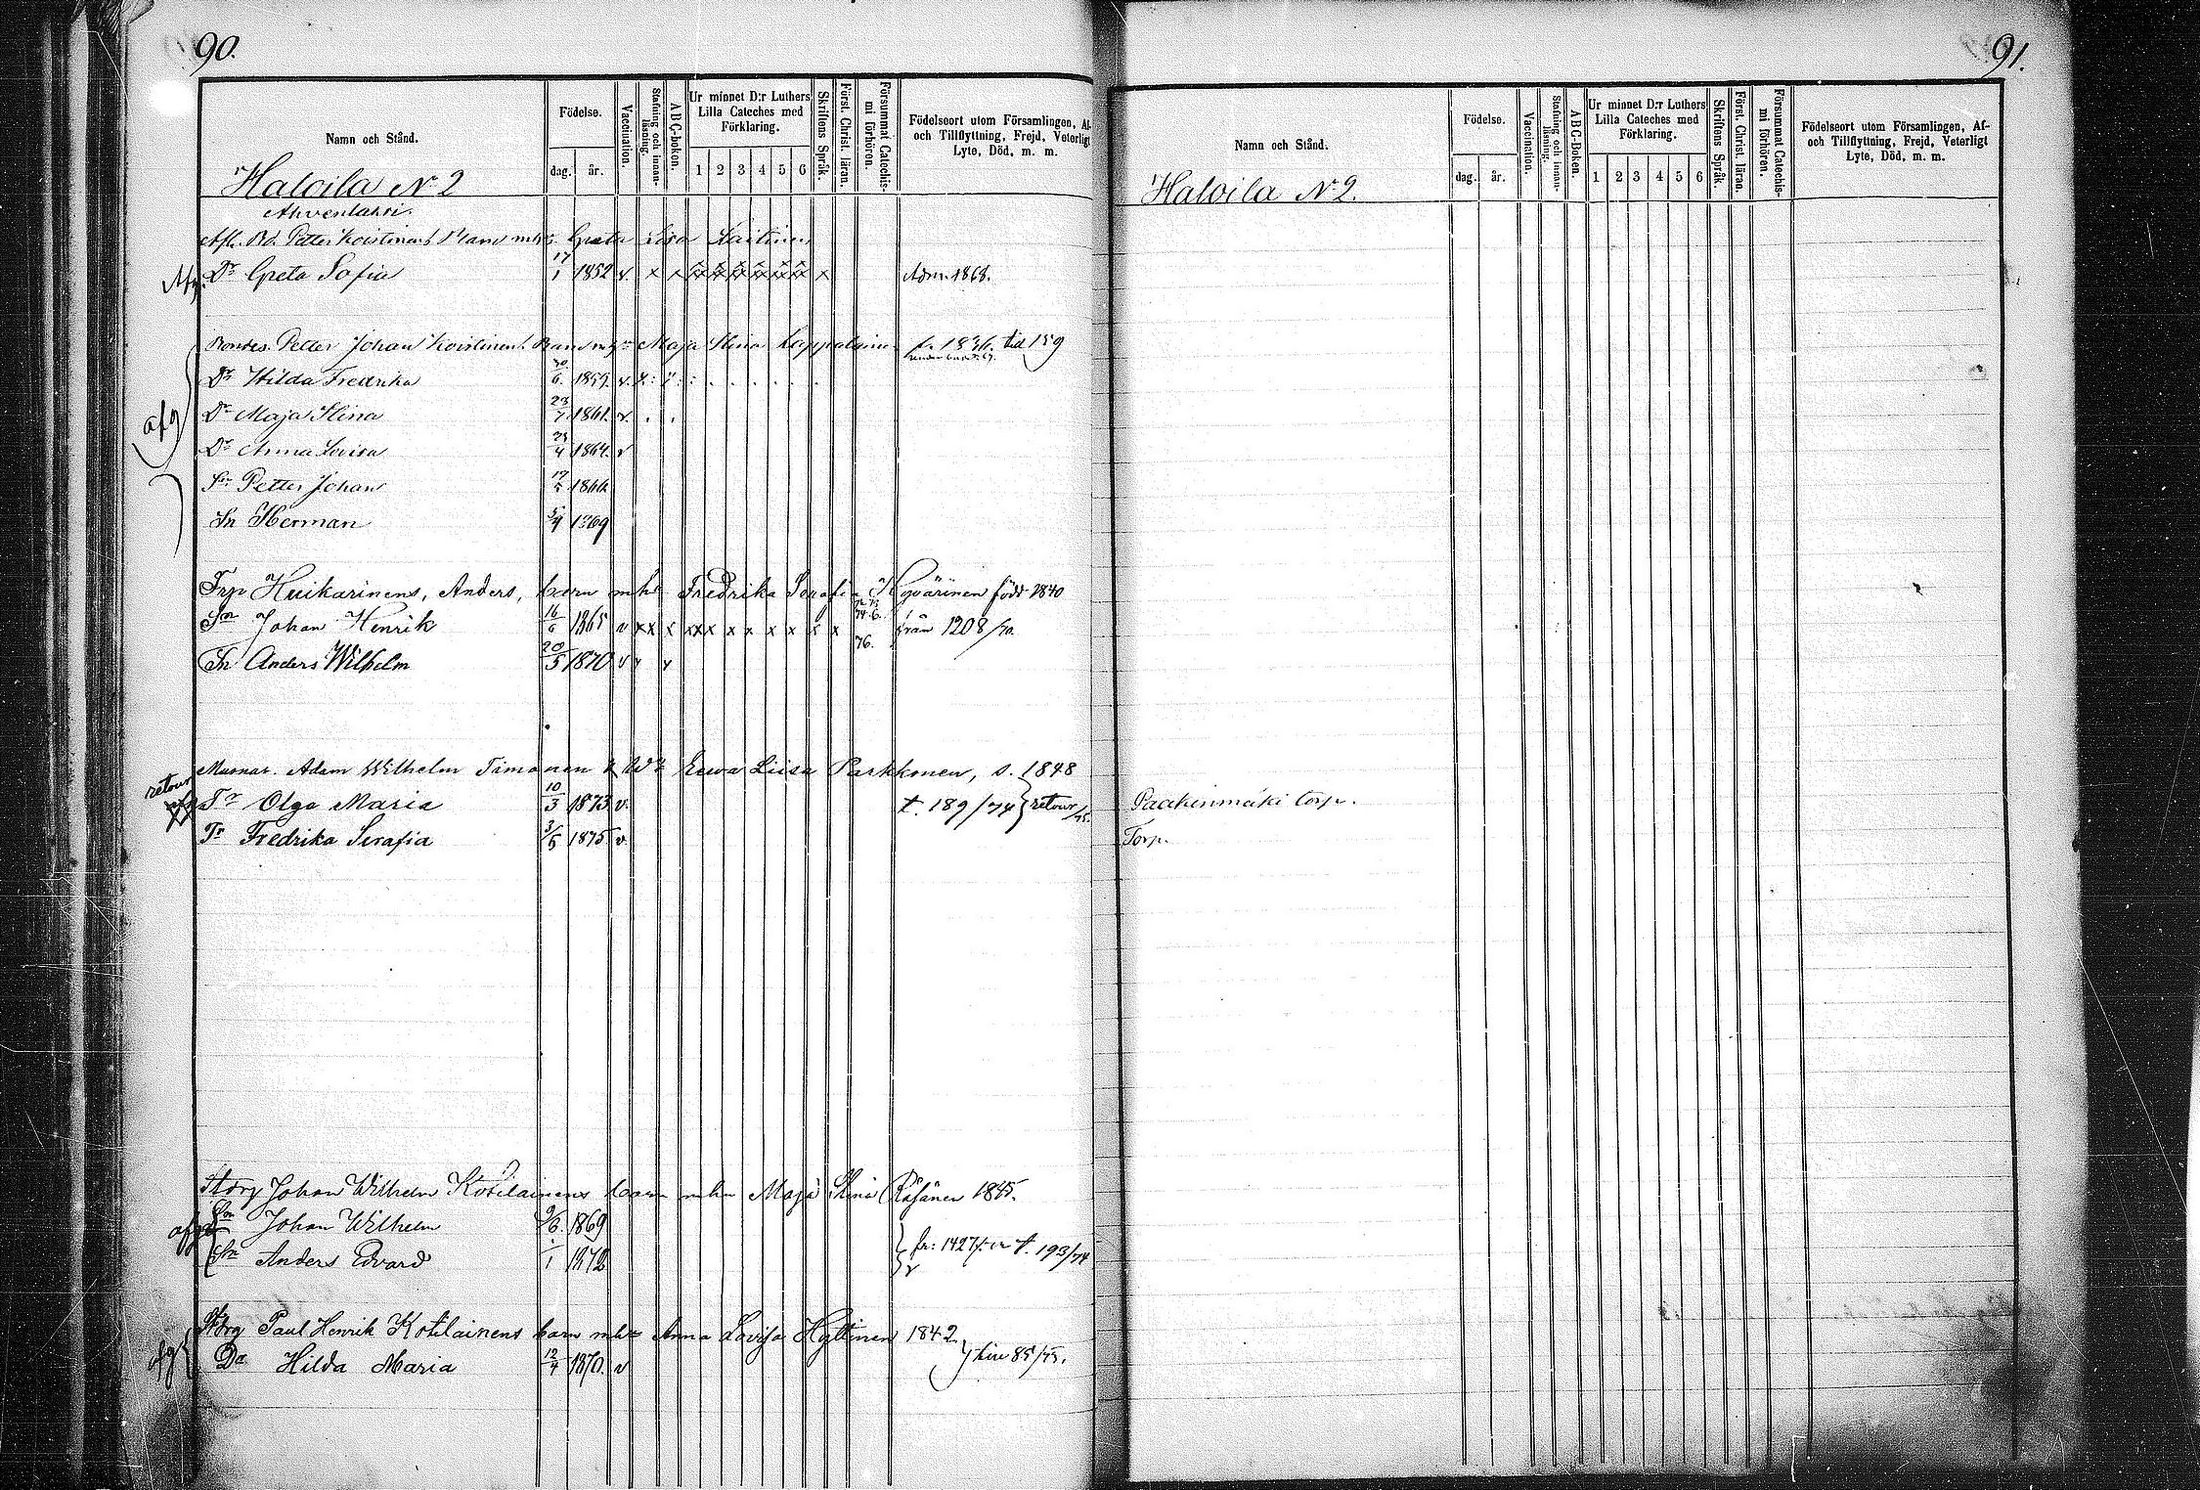 90.
Namn och Stånd.
Födelse.
dag. år.
Vaccination.
Stafning och innan-läsning.
ABC-boken.
Ur minnet D:r Luthers
Lilla Cateches med
Förklaring.
1 2 3 4 5 6
Skriftens Språk.
Först. Christ. läran.
Försummat Catechis-
mi förhören.
Födelseort utom Församlingen, Af-
och Tillflyttning, Frejd, Veterligt
Lyte, Död, m. m.
Haloila No 2
Ahvenlaksi.
Petter Koistinens Greta Lisa Laitinen
Afg. Dr Greta Sofia 17/1 1852 v. x x x Adm. 1868.
Bondes. Petter Johan Koistinens Barn Maja Stina Lappalainen till 159
afg
Dr Hilda Fredrika 30/6 1859. v.
Dr Maja Stina 23/7 1861. v.
Dr Anna Lovisa 23/4 1864. v
Sn Petter Johan 17/5 1866
Sn Herman 5/4 1869
Trp Huikarinens, Anders, barn mhu Fredrika Serafia Hyvärinen född 1840
Sn Johan Henrik 16/6 1865 v xx x xxx x x x x x x 74. 76. från 1208/70.
Sn Anders Wilhelm 20/5 1870 v v v
Adam Wilhelm Timonen Ewa Liisa Parkkonen, s. 1848
retour
Tr Olga Maria 10/3 1873 v. t. 189/74 retour/75.
Tr Fredrika Serafia 3/5 1875 v
Johan Wilhelm Kotilainens barn mhu Maja Stina Räsänen 1845.
Sn Johan Wilhelm 9/6. 1869
Sn Anders Edvard 1872 t. 193/74
Paul Henrik Kotilainens barn mhu Anna Lovisa Hyttinen 1842
afg Dr Hilda Maria 12/4 1870. v 85/73.
91.
Namn och Stånd.
Födelse.
dag. år.
Vaccination.
Stafning och innan-läsning.
ABC-Boken.
Ur minnet D:r Luthers
Lilla Cateches med
Förklaring.
1 2 3 4 5 6
Skriftens Språk.
Först. Christ. läran.
Försummat Catechis-
mi förhören.
Födelseort utom Församlingen, Af-
och Tillflyttning, Frejd, Veterligt
Lyte, Död, m. m.
Haloila No 2.
Paakinmäki torp.
Torp.